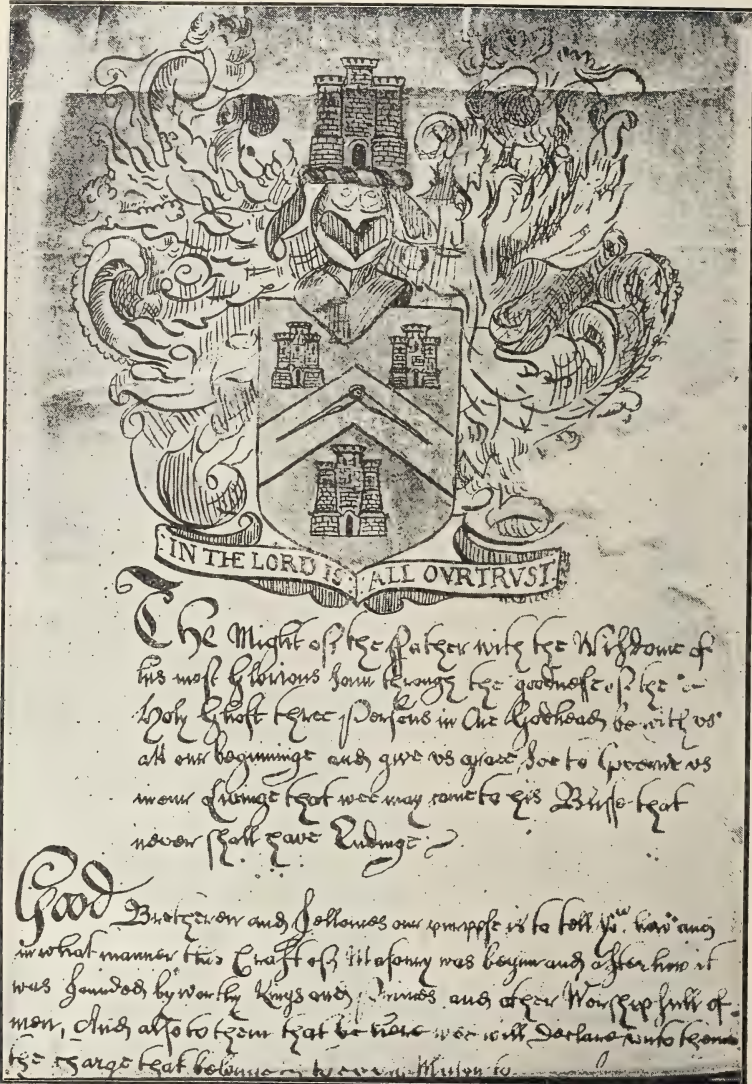 IN THE LORD IS ALL OVR TRVST
The Might of the ffather with the Wisdome of
his most Glorious Sonn through the goodnesse of the
Holy Ghost three Persons in One Godhead be with us
att our beginninge and give vs grace soe to Governe vs
in our Livinge that wee may come to his Blisse that
never shall have Endinge
Good Bretheren and ffellowes our purpose is to tell you how and
in what manner this Craft of Masonry was begun and after how it
was founded by worthy Kings and Princes and other Worshipfull
men, And also to them that be here wee will Declare unto them
the Charge that belongs to every Mason to